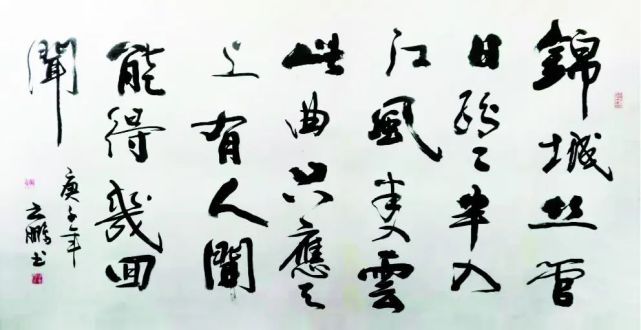 錦城丝管
日紛々半入
江風半入雲
此曲只應天
上有人間
能得幾回
聞
庚子年
之鵬书